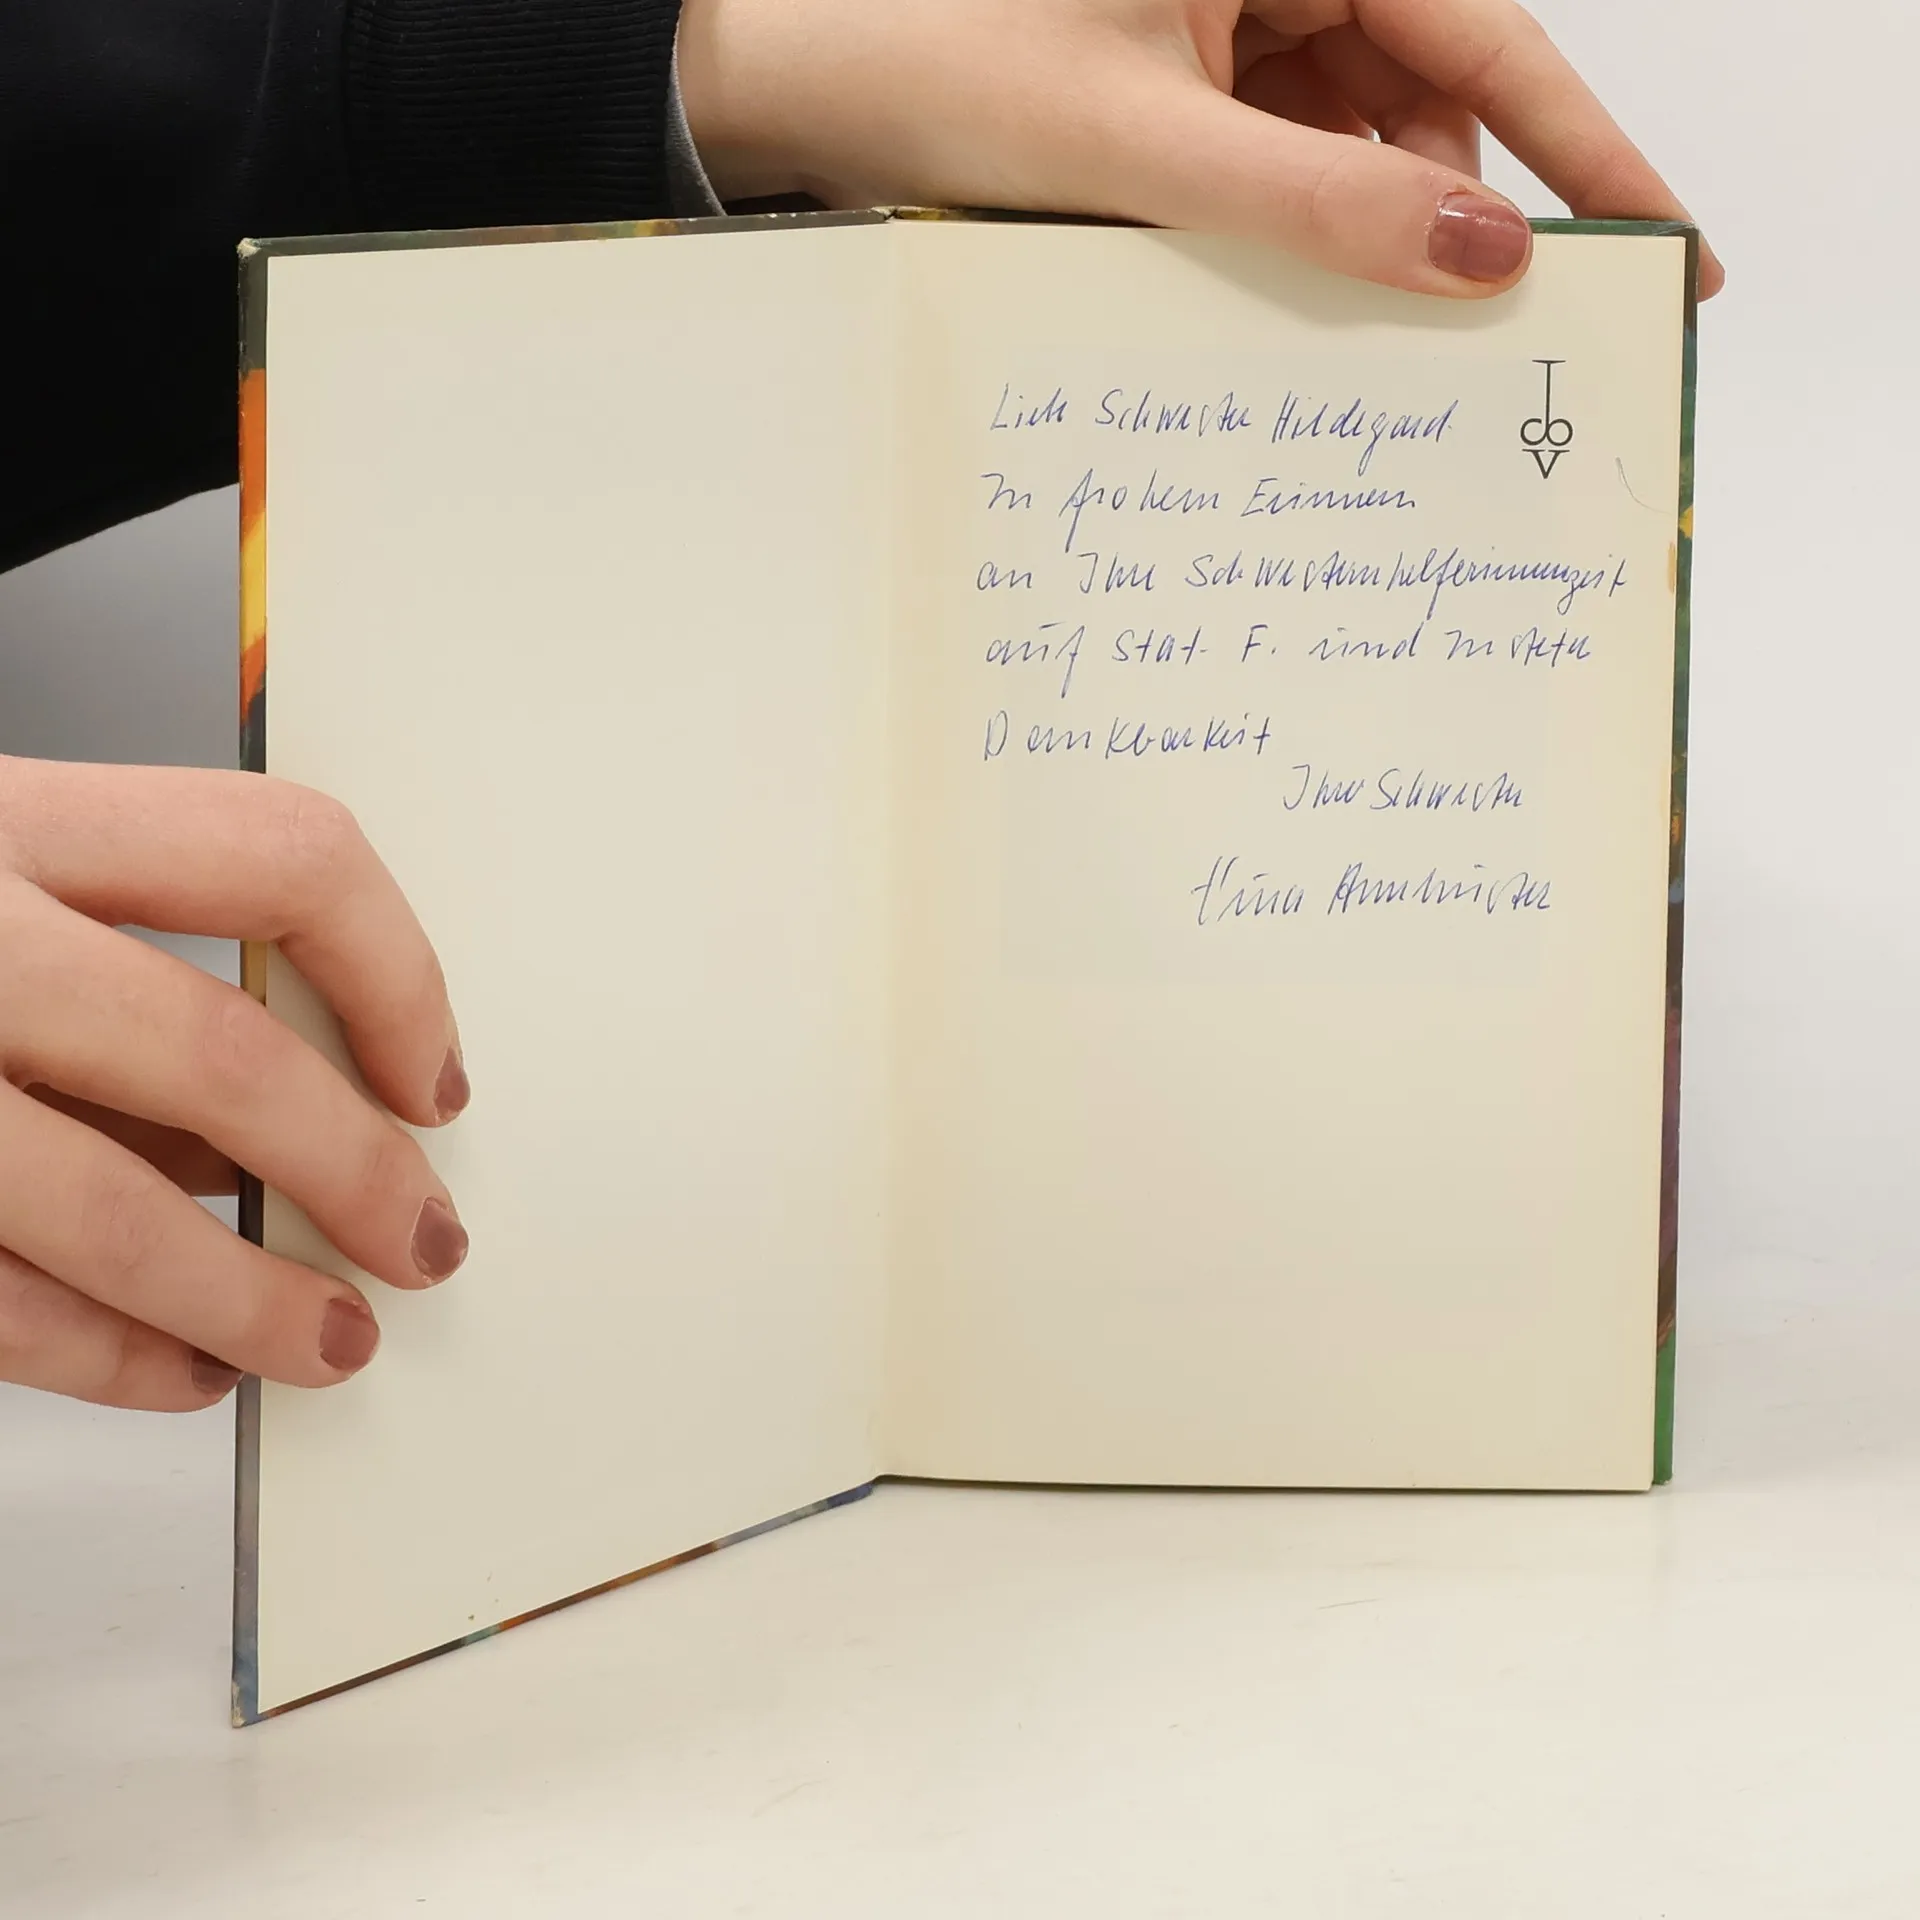 Liebe Schwester Hildegard.
In frohem Erinnern
an Ihre Schwesternhelferinnenzeit
auf Stat. F. und in steter
Dankbarkeit
Ihre Schwester